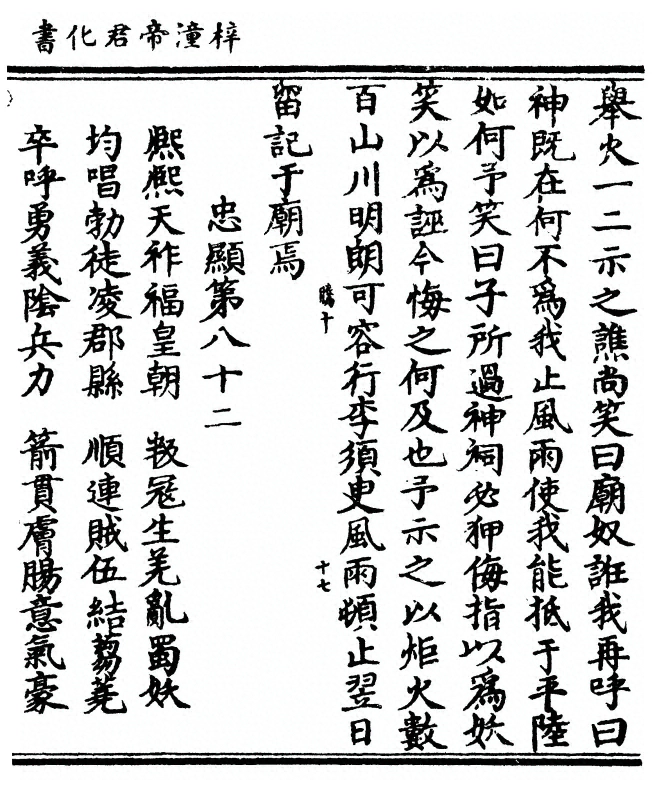 梓潼帝君化書
舉火一二示之譙尚笑曰廟奴誑我再呼曰
神既在何不爲我止風雨使我能抵于平陸
如何予笑曰子所過神祠必狎侮指以爲妖
笑以爲誣今悔之何及也予示之以炬火數
百山川明朗可容行李須臾風雨頓止翌日
留記于廟焉
忠顯第八十二
熙熙天祚福皇朝 叛冦生羌亂蜀妖
均唱勃徒凌郡縣 順連賊伍結蒭蕘
卒呼勇義陰兵力 箭貫膚腸意氣豪
騰十
十七